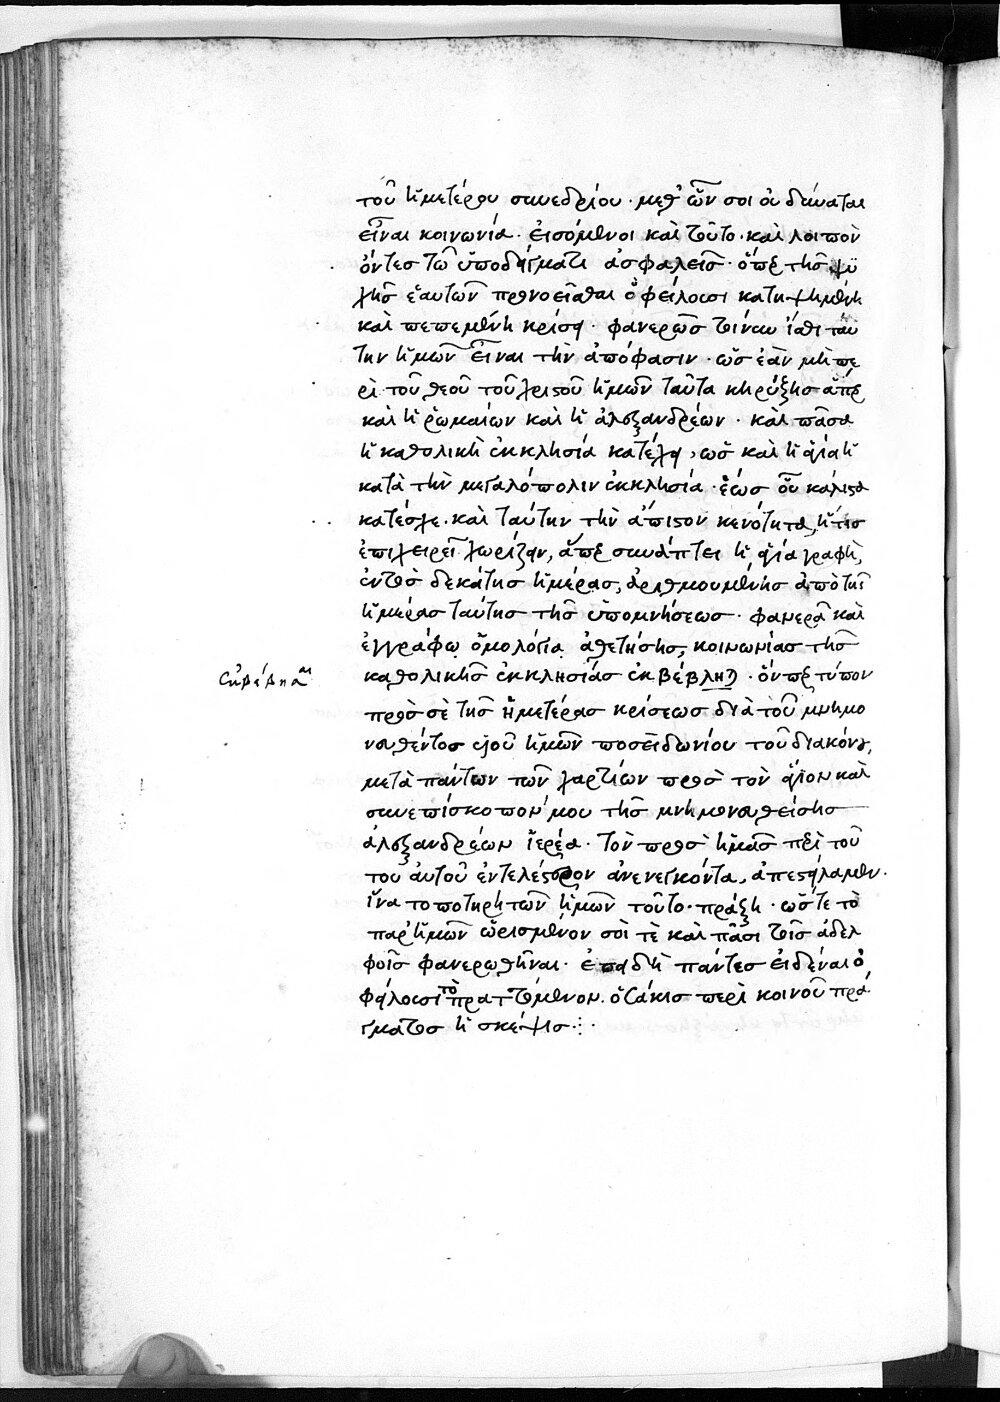 τοῦ ἡμετέρου συνεδρίου· μεθ' ὧν σοι οὐ δύναται
εἶναι κοινωνία· εἰσόμενοι καὶ τοῦτο· καὶ λοιπὸν
ὄντες τῶ ὑποδείγματι ἀσφαλεῖς· ὅπερ τῆς ψυ
χῆς ἑαυτῶν προνοεῖσθαι ὀφείλουσι κατεψημένη
καὶ πεπεμένη κρίσει· φανερῶς τοίνυν ἴσθι ταύ
την ἡμῶν εἶναι τὴν ἀπόφασιν· ὡς ἐὰν μὴ πε
ρὶ τοῦ θεοῦ τοῦ χριστοῦ ἡμῶν ταῦτα κηρύξης ἅπερ
καὶ ἡ ῥωμαίων καὶ ἡ ἀλεξανδρέων· καὶ πᾶσα
ἡ καθολικὴ ἐκκλησία κατέχει, ὡς καὶ ἡ ἁγία ἡ
κατὰ τὴν μεγαλόπολιν ἐκκλησία· ἕως οὗ κάλιστα
κατέσχε· καὶ ταύτην τὴν ἄπιστον κενότητα, ἥτις
ἐπιχειρεῖ χωρίζειν, ἅπερ συνάπτει ἡ ἁγία γραφὴ,
ἐντὸς δεκάτης ἡμέρας, ἀριθμουμένης ἀπὸ τῆς
ἡμέρας ταύτης τῆς ὑπομνήσεως· φανερᾶ καὶ
ἐγγράφω ὁμολογία ἀθετήσης, κοινωνίας τῆς
καθολικῆς ἐκκλησίας ἐκβέβλησ· ὅνπερ τύπον
πρὸς σὲ τῆς ἡμετέρας κρίσεως διὰ τοῦ μνημο
νευθέντος υἱοῦ ἡμῶν ποσειδωνίου τοῦ διακόνου,
μετὰ πάντων τῶν χαρτίων πρὸς τὸν ἅγιον καὶ
συνεπίσκοπόν μου τῆς μνημονευθείσης
ἀλεξανδρέων ἱερέα· τὸν πρὸς ἡμᾶς περὶ τοῦ
του αὐτοῦ ἐντελέστερον ἀνενεγκόντα, ἀπεστείλαμεν·
ἵνα τοποτηρητῶν ἡμῶν τοῦτο· πράξη· ὥστε τὸ
παρ' ἡμῶν ὡρισμένον σοὶ τὲ καὶ πᾶσι τοῖς ἀδελ
φοῖς φανερωθῆναι· ἐπειδὴ πάντες εἰδέναι ὀ
φείλουσι τὸ πραττόμενον· ὁσάκις περὶ κοινοῦ πρά
γματος ἡ σκέψις·